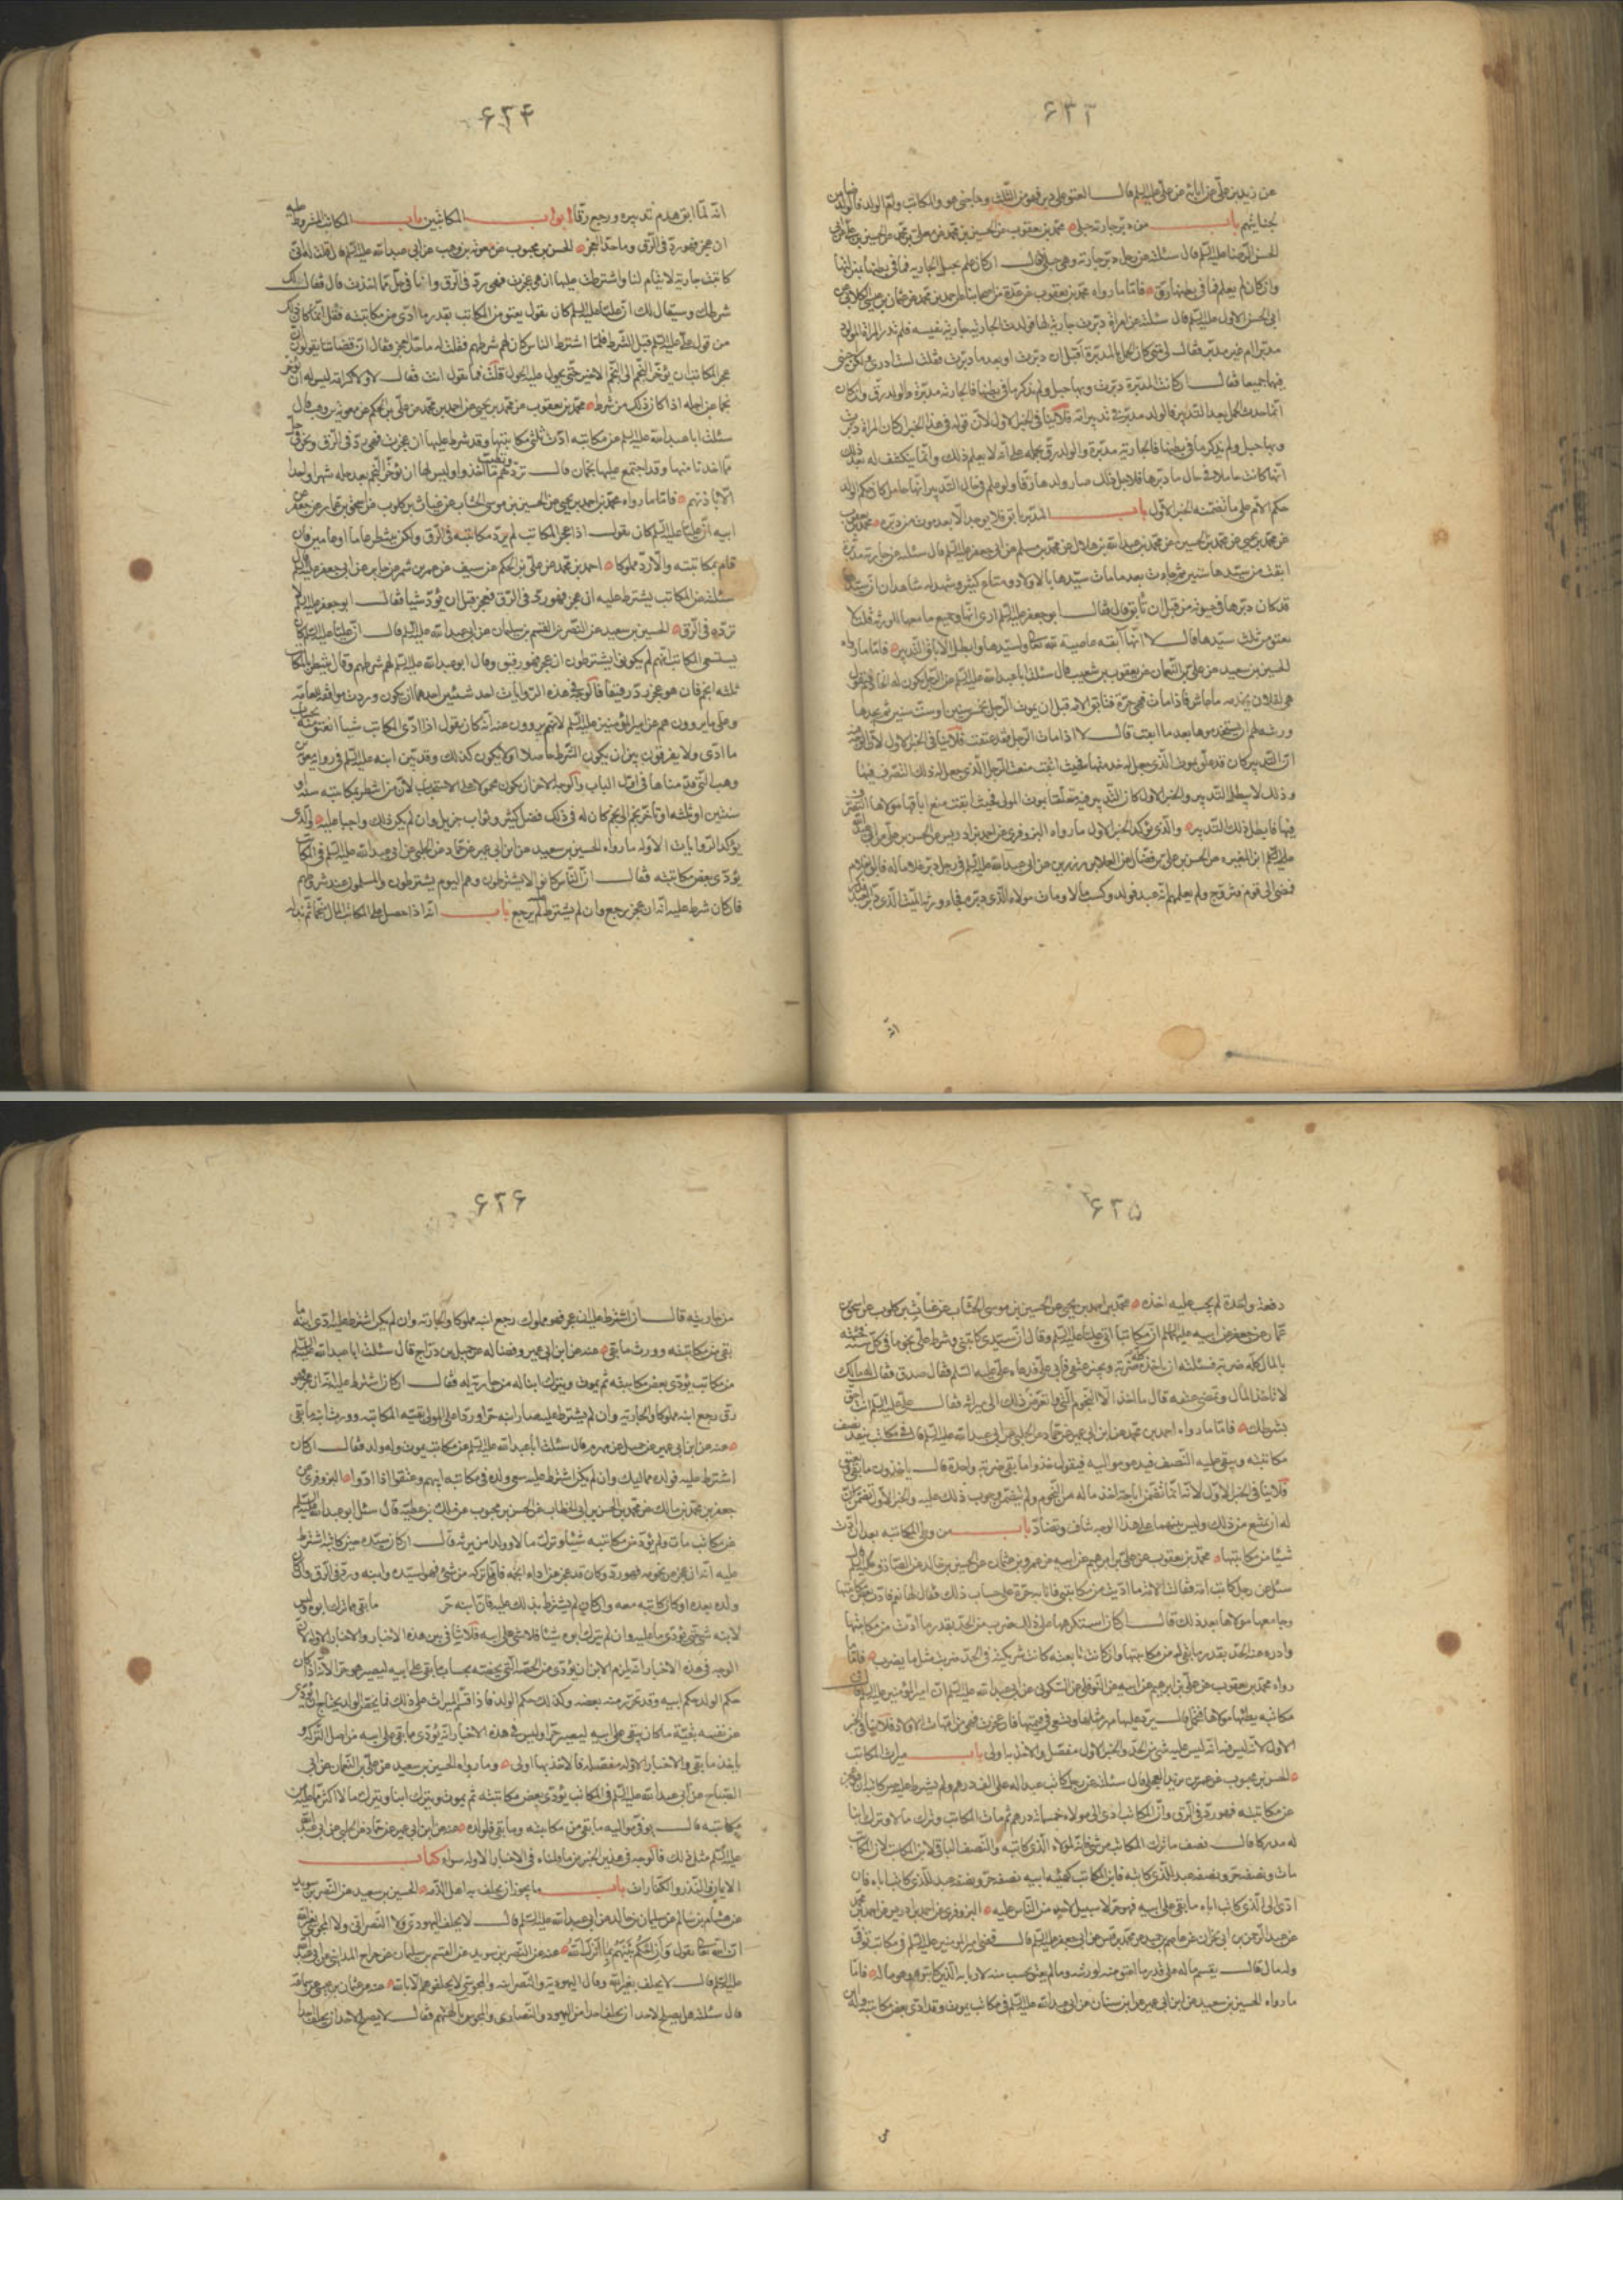 ۶۳۳
عن زيد بن علي عن ابائه عن علي عليه السلم قال المعتق على دبر فهو من الثلث وما جنى هو والمكاتب وام الولد فالمولى ضامن
لجنايتهم باب من دبر جارية حبلى محمد بن يعقوب عن الحسين بن محمد عن معلى بن محمد عن الحسن بن علي عن ابي
الحسن الرضا عليه السلم قال سئلته عن رجل دبر جارية وهي حبلى فقال ان كان علم بحبل الجارية فما في بطنها بمنزلتها
وان كان لم يعلم فما في بطنها رق فاما ما رواه محمد بن يعقوب عن عدة من اصحابنا عن احمد بن محمد عن عثمان بن عيسى الكلابي عن
ابي الحسن الاول عليه السلم قال سئلته عن امراة دبرت جارية لها فولدت الجارية جارية نفيسه فلم تدر المراة المولود
مدبرا ام غير مدبر فقال لي متى كان الحمل بالمدبرة اقبل ان دبرت او بعد ما دبرت فقلت لست ادري ولكن اجبني
فيهما جميعا فقال ان كانت المدبرة دبرت وبها حبل ولم تذكر ما في بطنها فالجارية مدبرة والولد رق وان كان
انما حدث الحمل بعد التدبير فالولد مدبر في تدبير امه فلا ينافي الخبر الاول لان قوله في هذا الخبر ان كان المراة دبرت
وبها حبل ولم يذكر ما في بطنها فالجارية مدبرة والولد رق نحمله على انه لا يعلم ذلك وانما ينكشف له بعد ذلك
انها كانت حاملا في حال ما دبرها فلاجل ذلك صار ولدها رقا ولو علم في حال التدبير انها حامل كان حكم الولد
حكم الام على ما تضمنه الخبر الاول باب المدبر يابق فلا يوجد الا بعد موت من دبره محمد بن يعقوب
عن محمد بن يحيى عن محمد بن الحسين عن محمد بن عبد الله بن هلال عن محمد بن مسلم عن ابي جعفر عليه السلم قال سئلته عن جارية مدبرة
ابقت من سيدها سنين ثم جاءت بعد ما مات سيدها باولاد ومتاع كثير وشهد له شاهدان ان سيدها
قد كان دبرها في حيوته من قبل ان تابق قال فقال ابو جعفر عليه السلم ارى انها وجميع ما معها للورثة قلت لا
تعتق من ثلث سيدها قال لا انها ابقت عاصية لله تعالى ولسيدها وابطل الاباق التدبير فاما ما رواه
الحسين بن سعيد عن علي بن النعمان عن يعقوب بن شعيب قال سئلت ابا عبد الله عليه السلم عن الرجل يكون له الخادم فيقول
هي لفلان تخدمه ما عاش فاذا مات فهي حرة فتابق الامة قبل ان يموت الرجل بخمس سنين او ست سنين ثم يجدها
ورثته الهم ان يستخدموها بعد ما ابقت قال لا اذا مات الرجل فقد عتقت فلا ينافي الخبر الاول لان الوجه فيه
ان التدبير كان قد علق بموت الذي جعل له خدمتها فحيث ابقت منعت الرجل الذي جعل له ذلك التصرف فيها
وذلك لا يبطل التدبير والخبر الاول كان التدبير فيه متعلقا بموت المولى فحيث ابقت منع اباقها مولاها التصرف
فيها فابطل ذلك التدبير والذي يؤكد الخبر الاول ما رواه البزوفري عن احمد بن ادريس عن الحسن بن علي عن ابي عبد الله
عليه السلم ابن المغيرة عن الحسن بن علي بن فضال عن العلا بن رزين عن ابي عبد الله عليه السلم في رجل دبر غلاما له فابق الغلام
فمضى الى قوم فتزوج ولم يعلمهم انه عبد فولد وكسب مالا ومات مولاه الذي دبره فجاء ورثة الميت الذي دبر العبد
انه
۶۳۴
انه لما ابق هدم تدبيره ورجع رقا ابواب المكاتبين باب المكاتب المشروط عليه
ان عجز فهو رد في الرق وما حد العجز الحسن بن محبوب عن معوية بن وهب عن ابي عبد الله عليه السلم قال قلت له اني
كاتبت جارية لايتام لنا واشترطت عليها ان هي عجزت فهي رد في الرق وانا في حل مما اخذت قال فقال لك
شرطك وسيقال لك ان عليا عليه السلم كان يقول يعتق من المكاتب بقدر ما ادى من مكاتبته فقل انما كان ذلك
من قول علي عليه السلم قبل الشرط فلما اشترط الناس كان لهم شرطهم فقلت له ما حد العجز فقال ان قضاتنا يقولون ان
عجز المكاتب ان يؤخر النجم الى النجم الاخر حتى يحول عليه الحول قلت فما تقول انت فقال لا ولا كرامة ليس له ان يؤخر
نجما عن اجله اذا كان ذلك من شرطه محمد بن يعقوب عن محمد بن يحيى عن احمد بن محمد عن علي بن الحكم عن معوية بن وهب قال
سئلت ابا عبد الله عليه السلم عن مكاتبة ادت ثلثي مكاتبتها وقد شرط عليها ان عجزت فهي رد في الرق ونحن في حل
مما اخذنا منها وقد اجتمع عليها نجمان قال ترد وتطيب لهم ما اخذوا وليس لها ان تؤخر النجم بعد حله شهرا واحدا
الا باذنهم فاما ما رواه محمد بن احمد بن يحيى عن الحسين بن موسى الخشاب عن غياث بن كلوب عن اسحق بن عمار عن جعفر عن
ابيه ان عليا عليه السلم كان يقول اذا عجز المكاتب لم يرد مكاتبته في الرق ولكن ينتظر عاما او عامين فان
قام بمكاتبته والا رد مملوكا احمد بن محمد عن علي بن الحكم عن سيف عن عمرو بن شمر عن جابر عن ابي جعفر عليه السلم قال
سئلته عن المكاتب يشترط عليه ان عجز فهو رد في الرق فعجز قبل ان يؤد شيا فقال ابو جعفر عليه السلم لا
ترده في الرق الحسين بن سعيد عن النضر عن القسم بن سليمان عن ابي عبد الله عليه السلم قال ان عليا عليه السلم كان
يستسعي المكاتب انهم لم يكونوا يشترطون ان عجز فهو رقيق وقال ابو عبد الله عليه السلم لهم شرطهم وقال ينتظر بالمكاتب
ثلثه انجم فان هو عجز رد رقيقا فالوجه في هذه الروايات احد شيئين احدهما ان يكون وردت موافقة للعامة
وعلى ما يروون هم عن امير المؤمنين عليه السلم لانهم يروون عنه انه كان يقول اذا ادى المكاتب شيا انعتق منه بحساب
ما ادى ولا يفرقون بين ان يكون الشرط حاصلا او لا يكون كذلك وقد بين ابنه عليه السلم في رواية معوية بن
وهب التي قدمناها في اول الباب والوجه الاخر ان يكون محمولا على الاستحباب لان من انتظر بمكاتبه سنة او
سنتين او ثلثة او تاخر نجم الى نجم كان له في ذلك فضل كثير وثواب جزيل وان لم يكن ذلك واجبا عليه والذي
يؤكد الروايات الاولة ما رواه الحسين بن سعيد عن ابن ابي عمير عن حماد عن الحلبي عن ابي عبد الله عليه السلم في المكاتب
يؤدي بعض مكاتبته فقال ان الناس كانوا لا يشترطون وهم اليوم يشترطون والمسلمون عند شروطهم
فان كان شرط عليه انه ان عجز رجع وان لم يشترط لم يرجع باب انه اذا حصل على المكاتب المال نجما ثم بذله
۶۳۵
دفعة واحدة لم يجب عليه اخذه محمد بن احمد بن يحيى عن الحسين بن موسى الخشاب عن غياث بن كلوب عن اسحق بن
عمار عن جعفر عن ابيه عليهما السلم ان مكاتبا اتى عليا عليه السلم وقال ان سيدي كاتبني وشرط علي نجوما في كل سنة فجئته
بالمال كله ضربة فسئلته ان ياخذ كله ضربة ويجيز عتقي فابى علي فدعاه علي عليه السلم فقال صدق فقال له مالك
لا تاخذ المال وتمضي عتقه قال ما اخذ الا النجوم التي شرطت واتعرض من ذلك الى ميراثه فقال علي عليه السلم انت احق
بشرطك فاما ما رواه احمد بن محمد عن ابن ابي عمير عن حماد عن الحلبي عن ابي عبد الله عليه السلم قال في مكاتب ينقد نصف
مكاتبته ويبقى عليه النصف فيدعو مواليه فيقول خذوا ما بقي ضربة واحدة قال ياخذون ما بقي ويعتق
فلا ينافي الخبر الاول لانه انما تضمن اباحة اخذ ماله من النجوم ولم يتضمن وجوب ذلك عليه والخبر الاول تضمن ان
له ان يمتنع من ذلك وليس بينهما على هذا الوجه تناف وتضاد باب من وطى المكاتبة بعد ان ادت
شيئا من مكاتبتها محمد بن يعقوب عن علي بن ابرهيم عن ابيه عن عمرو بن عثمان عن الحسين بن خالد عن الصادق عليه السلم قال
سئل عن رجل كاتب امة له فقالت الامة ما اديت من مكاتبتي فانا به حرة على حساب ذلك فقال لها نعم فادت بعض مكاتبتها
وجامعها مولاها بعد ذلك قال ان كان استكرهها على ذلك ضرب من الحد بقدر ما ادت من مكاتبتها
وادرء عنه الحد بقدر ما بقي له من مكاتبتها وان كانت تابعته كانت شريكته في الحد ضربت مثل ما يضرب فاما ما
رواه محمد بن يعقوب عن علي بن ابرهيم عن ابيه عن النوفلي عن السكوني عن ابي عبد الله عليه السلم ان امير المؤمنين عليه السلم قال في
مكاتبة يطئها مولاها فتحمل قال يرد عليها مهر مثلها وتسعى في قيمتها فان عجزت فهي من امهات الاولاد فلا ينافي الخبر
الاول لانه ليس فيه انه ليس عليه شي من الحد والخبر الاول مفصل والاخذ به اولى باب ميراث المكاتب
الحسن بن محبوب عن عمر بن يزيد العجلي قال سئلته عن رجل كاتب عبدا له على الف درهم ولم يشترط عليه حين كاتبه ان هو عجز
عن مكاتبته فهو رد في الرق وان المكاتب ادى الى مولاه خمسمائة درهم ثم مات المكاتب وترك مالا وترك ابنا
له مدركا قال نصف ما ترك المكاتب من شي فانه لمولاه الذي كاتبه والنصف الباقي لابن المكاتب لان المكاتب
مات ونصفه حر ونصفه عبد للذي كاتبه فابن المكاتب كهيئة ابيه نصفه حر ونصفه عبد للذي كاتب اباه فان
ادى الى الذي كاتب اباه ما بقي على ابيه فهو حر لا سبيل لاحد من الناس عليه البزوفري عن احمد بن ادريس عن احمد بن محمد
عن عبد الرحمن بن ابي نجران عن عاصم بن حميد عن محمد بن قيس عن ابي جعفر عليه السلم قال قضى امير المؤمنين عليه السلم في مكاتب توفي
وله مال قال يقسم ماله على قدر ما اعتق منه لورثته وما لم يعتق يحسب منه لاربابه الذين كاتبوه وهو ماله فاما
ما رواه الحسين بن سعيد عن ابن ابي عمير عن ابن سنان عن ابي عبد الله عليه السلم في مكاتب يموت وقد ادى بعض مكاتبته وله ابن
۶۳۶
من جاريته قال ان اشترط عليه ان عجز فهو مملوك رجع ابنه مملوكا والجارية وان لم يكن اشترط عليه ادى ابنه ما
بقي من مكاتبته وورث ما بقي عنه عن ابن ابي عمير وفضالة عن جميل بن دراج قال سئلت ابا عبد الله عليه السلم
عن مكاتب يؤدي بعض مكاتبته ثم يموت ويترك ابنا له من جارية له فقال ان كان اشترط عليه انه ان عجز فهو
رق رجع ابنه مملوكا والجارية وان لم يشترط عليه صار ابنه حرا ورد على المولى بقية المكاتبة وورث ابنه ما بقي
عنه عن ابن ابي عمير عن جميل عن مهزم قال سئلت ابا عبد الله عليه السلم عن مكاتب يموت وله ولد فقال ان كان
اشترط عليه فولده مماليك وان لم يكن اشترط عليه سعى ولده في مكاتبة ابيهم وعتقوا اذا ادوا البزوفري عن
جعفر بن محمد بن مالك عن محمد بن الحسين بن ابي الخطاب عن الحسن بن محبوب عن مالك بن عطية قال سئل ابو عبد الله عليه السلم
عن مكاتب مات ولم يؤد من مكاتبته شيئا وترك مالا وولدا من يرثه قال ان كان سيده حين كاتبه اشترط
عليه انه ان عجز عن نجومه فهو رد وكان قد عجز عن اداء نجمه فان ما ترك من شئ فهو لسيده وابنه رد في الرق وان كان
ولده بعده او كان كاتبه معه وان كان لم يشترط ذلك عليه فان ابنه حر ما بقي مما ترك ابوه وليس
لابنه شئ حتى يؤدي ما عليه وان لم يترك ابوه شيئا فلا شئ على ابنه فلا تنافي بين هذه الاخبار والاخبار الاولة لان
الوجه في هذه الاخبار انه يلزم الابن ان يؤدي من الحصة التي يخصه بحساب ما بقي على ابيه ليصير هو حرا لانه اذا كان
حكم الولد حكم ابيه وقد تحرر منه بعضه وكذلك حكم الولد فاذا اقتسم الميراث على ذلك فما يخص الولد يحتاج ان يؤدي
عن نفسه بقية ما كان يبقى على ابيه ليصير حرا وليس في هذه الاخبار انه يؤدي ما بقي على ابيه من اصل التركة و
ياخذ ما بقي والاخبار الاولة مفصلة فالاخذ بها اولى وما رواه الحسين بن سعيد عن علي بن النعمان عن ابي
الصباح عن ابي عبد الله عليه السلم في المكاتب يؤدي بعض مكاتبته ثم يموت ويترك ابنا ويترك مالا اكثر مما عليه من
مكاتبته قال يوفى مواليه ما بقي من مكاتبته وما بقي فلولده عنه عن ابن ابي عمير عن حماد عن الحلبي عن ابي عبد الله
عليه السلم مثل ذلك فالوجه في هذين الخبرين ما قلناه في الاخبار الاولة سواء كتاب
الايمان والنذور والكفارات باب ما يجوز ان يحلف به اهل الذمة الحسين بن سعيد عن النضر بن سويد
عن هشام بن سالم عن سليمان بن خالد عن ابي عبد الله عليه السلم قال لا يحلف اليهودي ولا النصراني ولا المجوسي بغير الله
ان الله تعالى يقول وان احكم بينهم بما انزل الله عنه عن النضر بن سويد عن القسم بن سليمان عن جراح المدايني عن ابي عبد الله
عليه السلم قال لا يحلف بغير الله وقال اليهودية والنصرانية والمجوسي لا تحلفوهم الا بالله عنه عن عثمان بن عيسى عن سماعة
قال سئلته هل يصلح لاحد ان يحلف احدا من اليهود والنصارى والمجوس بالهتهم فقال لا يصلح لاحد ان يحلف احدا